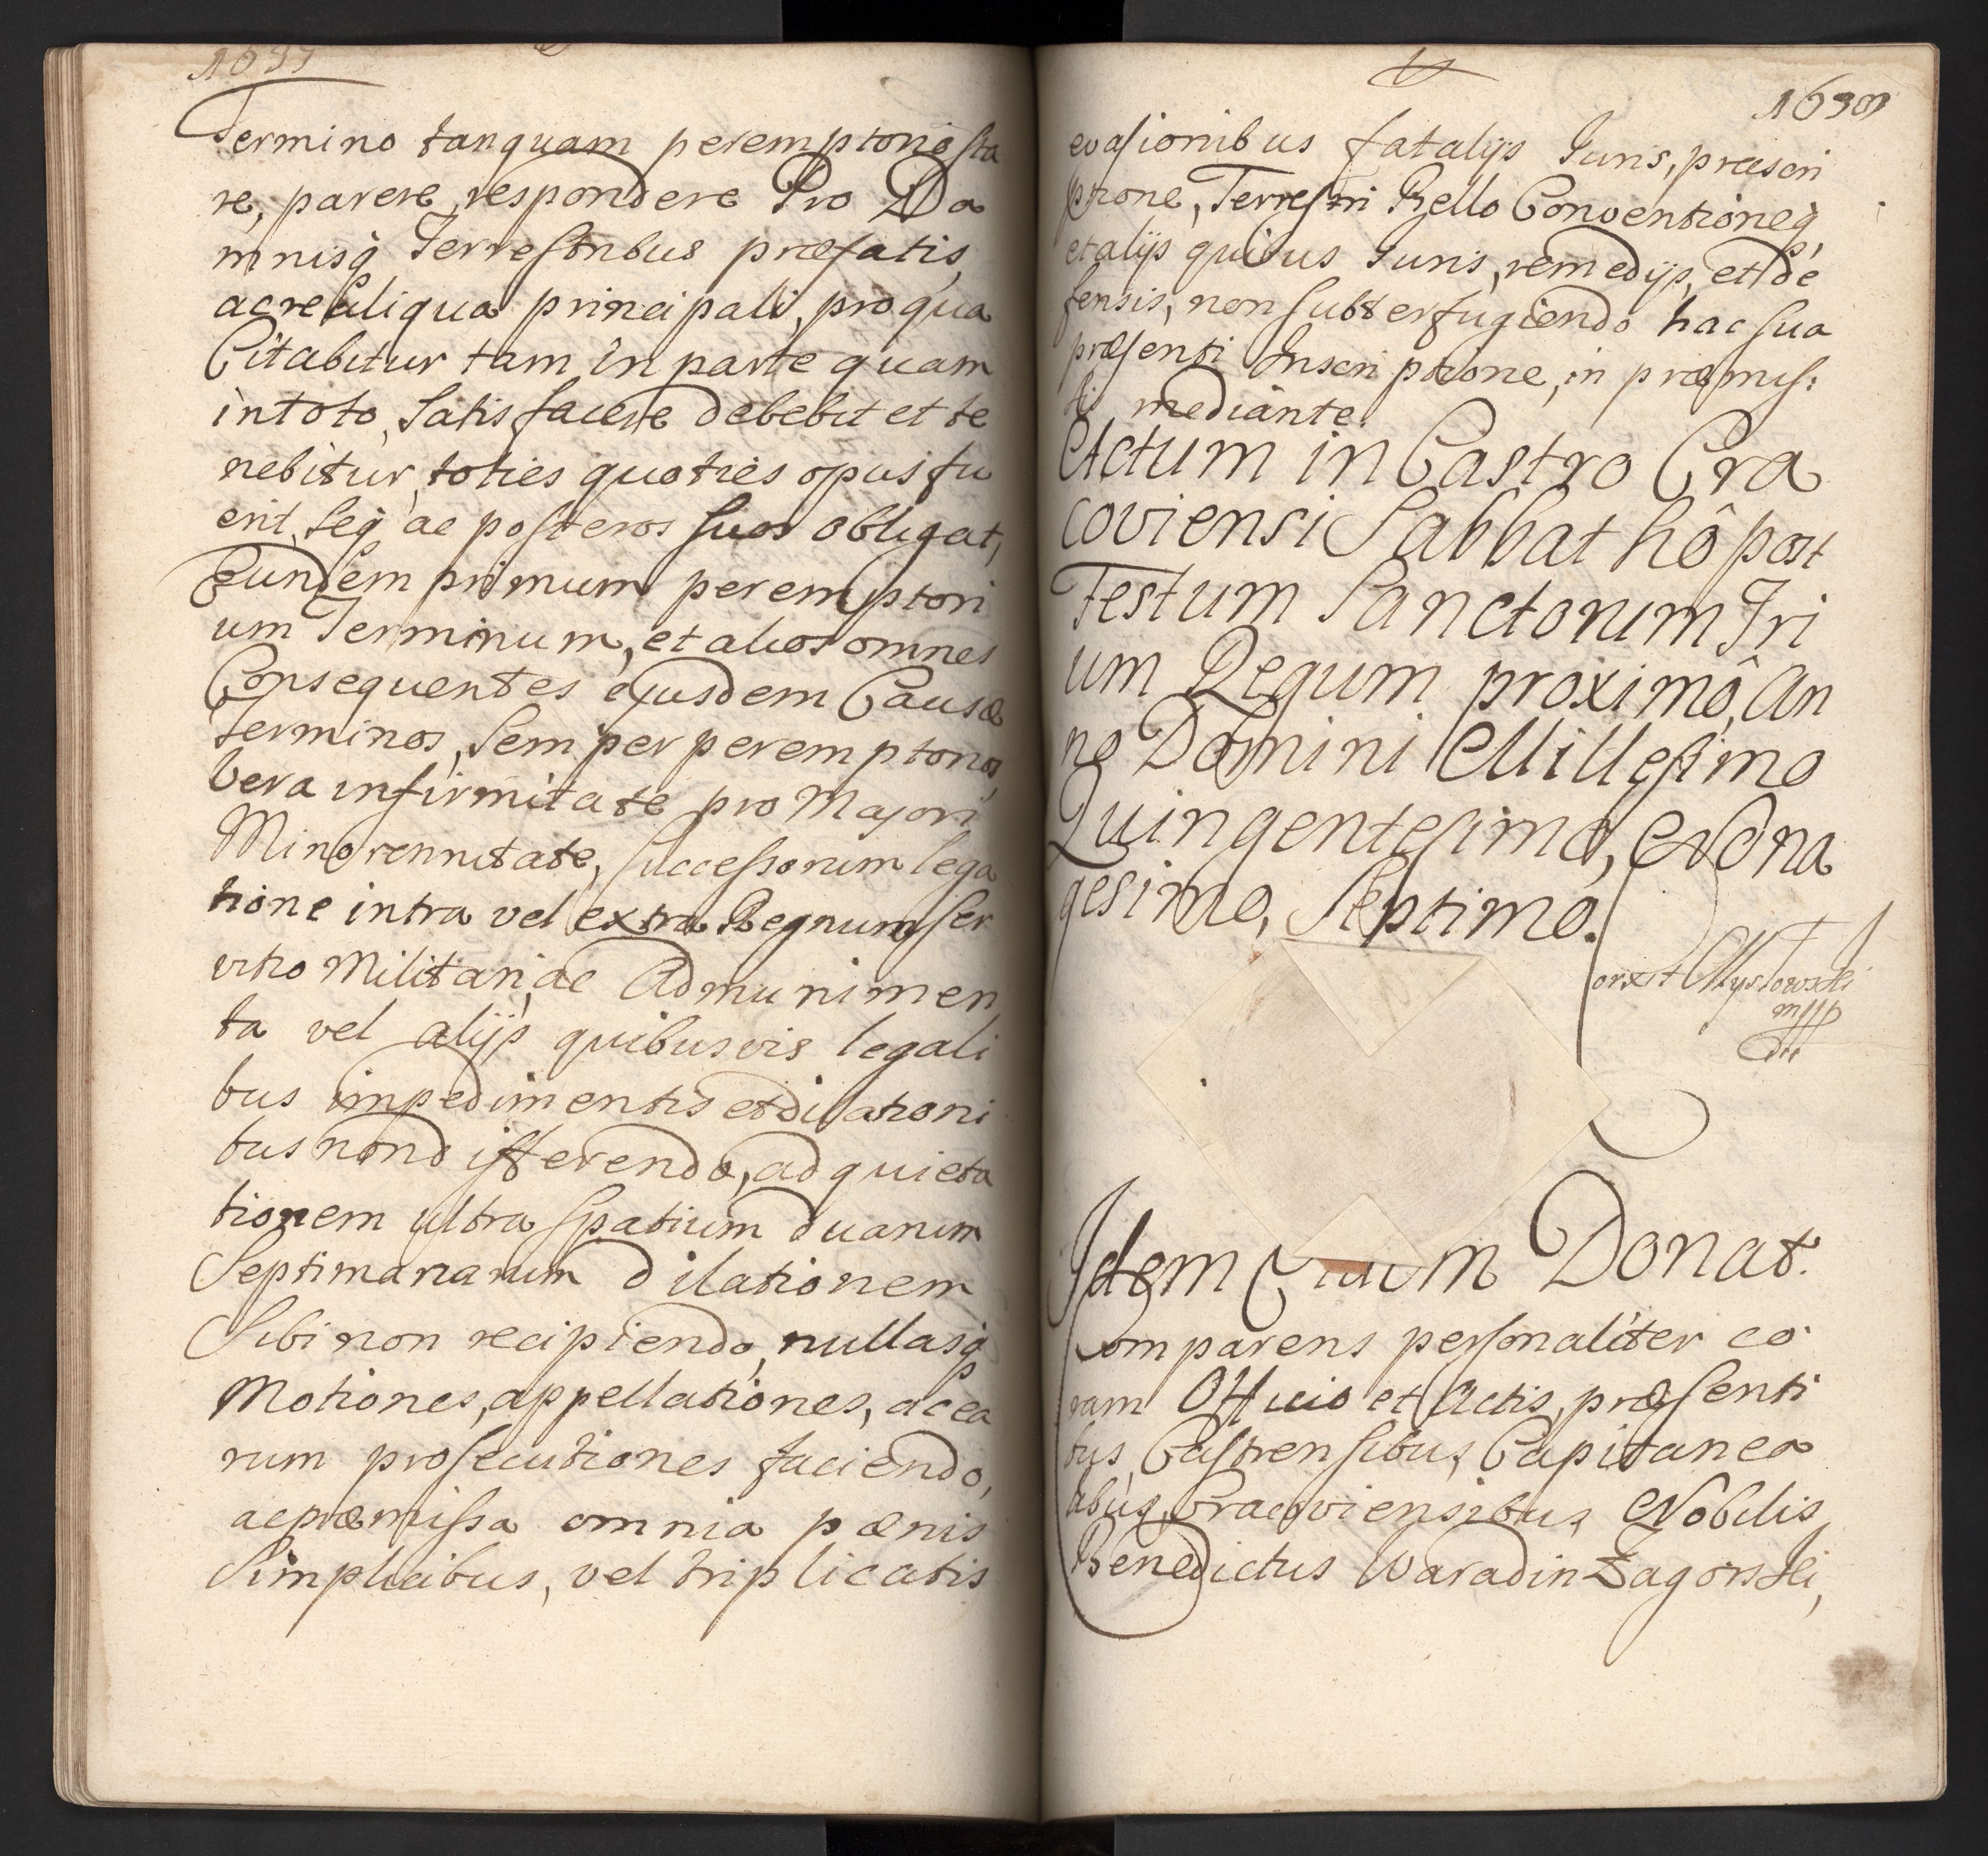 Termino tanquam peremptorio sta
re, parere respondere Pro Da
mnisq́ Terrestribus præfatis,
ac re aliqua principali, pro qua
Citabitur tam in parte quam
in toto, Satisfacere debebit et te
nebitur, toties quoties opus fu
erit, Seq́ ac posteros suos obligat,
Eundem primum peremptori
um Terminum, et alios omnes
Consequentes ejusdem Causæ
terminos, Semper peremptorios,
Vera infirmitate pro Majori
Minorennitate, Successorum lega
tione intra vel extra Regnum ser
vitio Militari, ac Admunimen
ta vel alijs quibusvis legali
bus impedimentis et dilationi
bus non differendo, ad quieta
tionem ultra spatium duarum
Septimanarum dilationem
Sibi non recipiendo, nullasq́
Motiones, appellationes, ac ea
rum prosecutiones faciendo,
ac præmissa omnia pænis
Simplicibus, vel triplicatis
evasionibus fatalijs Iuris, præscri
ptione, Terrestri Bello Conventioneq́,
et alijs quibus Iuris, remedijs, et de
fensis, non subterfugiendo hac sua
præsenti Inscriptione, in præmis:
sis mediante.
Actum in Castro Cra
coviensi Sabbathô post
Festum Sanctorum Tri
um Regum proximô, An
no Domini Millesimo
Quingentesimo, Nona
gesimo, Septimo.
Mystowski
mpp
Idem Donat.
Comparens personaliter co
ram Officio et Actis, præsenti
bus, Castrensibus, Capitanea
libus, Cracoviensibus, Nobilis
Benedictus Waradin Zagorski,